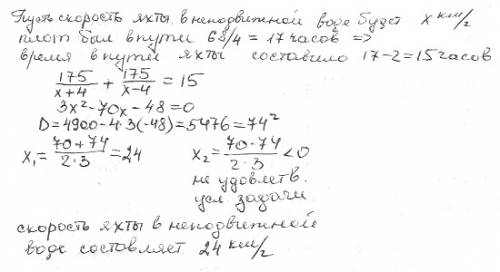 Пусть скорость яхты в неподвижной воде будет x км/г
плот был в пути 68/4 = 17 часов =>
время в пути яхты составило 17-2=15 часов
175/(x+4) + 175/(x-4) = 15
3x²-70x-48=0
D=4900-4·3(-48)=5476=74²
x₁= (70+74)/(2·3) =24    x₂= (70-74)/(2·3) <0
не удовлетв.
усл. задачи
скорость яхты в неподвижной
воде составляет 24 км/г